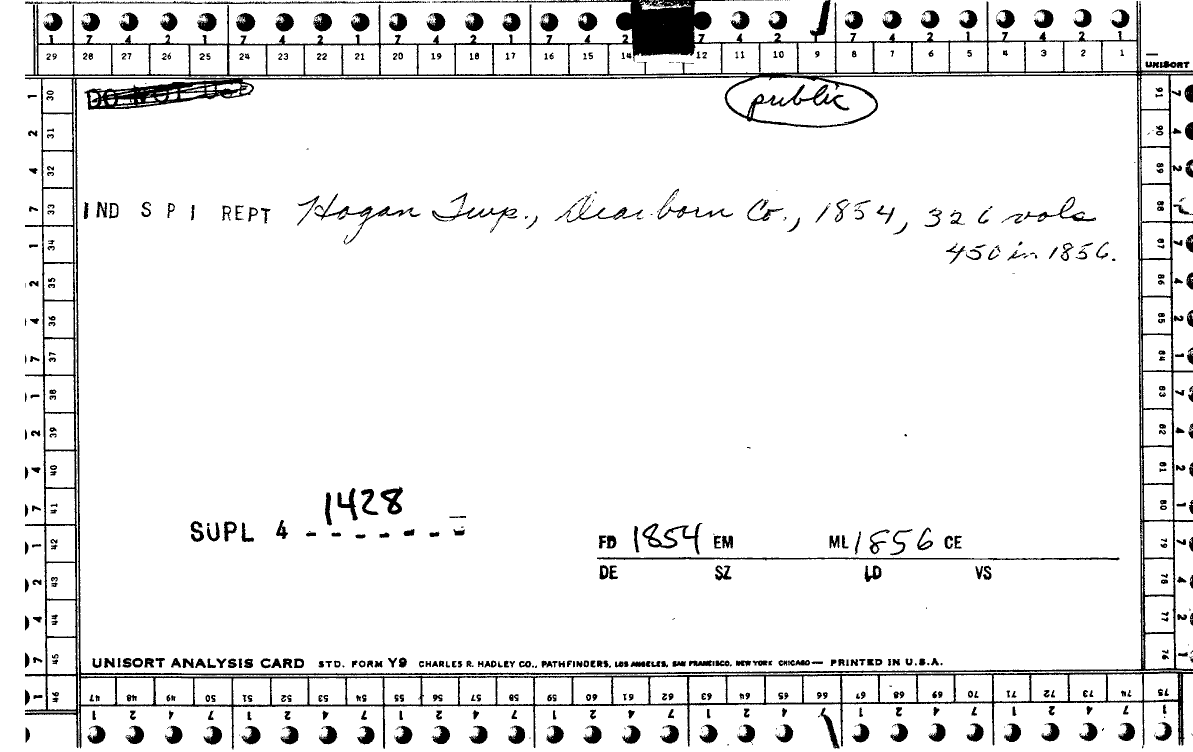 7 4 2 1 7 4 2 1 7 4 2 1 7 4 2 7 4 2 1 7 4 2 1 7 4 2 1
29 28 27 26 25 24 23 22 21 20 19 18 17 16 15 14 12 11 10 9 8 7 6 5 4 3 2 1
UNISORT
DO NOT USE
public
IND S P I REPT Hogan Twp., Dearborn Co., 1854, 326 vols
450 in 1856.
1428
SUPL 4 - - - - - - -
FD 1854 EM ML 1856 CE
DE SZ LD VS
UNISORT ANALYSIS CARD STD. FORM Y9 CHARLES R. HADLEY CO., PATHFINDERS, LOS ANGELES, SAN FRANCISCO, NEW YORK CHICAGO — PRINTED IN U.S.A.
1 2 4 7 1 2 4 7 1 2 4 7 1 2 4 7 1
30 31 32 33 34 35 36 37 38 39 40 41 42 43 44 45 46
91 90 89 88 87 86 85 84 83 82 81 80 79 78 77 76
47 48 49 50 51 52 53 54 55 56 57 58 59 60 61 62 63 64 65 66 67 68 69 70 71 72 73 74 75
1 2 4 7 1 2 4 7 1 2 4 7 1 2 4 7 1 2 4 7 1 2 4 7 1 2 4 7 1